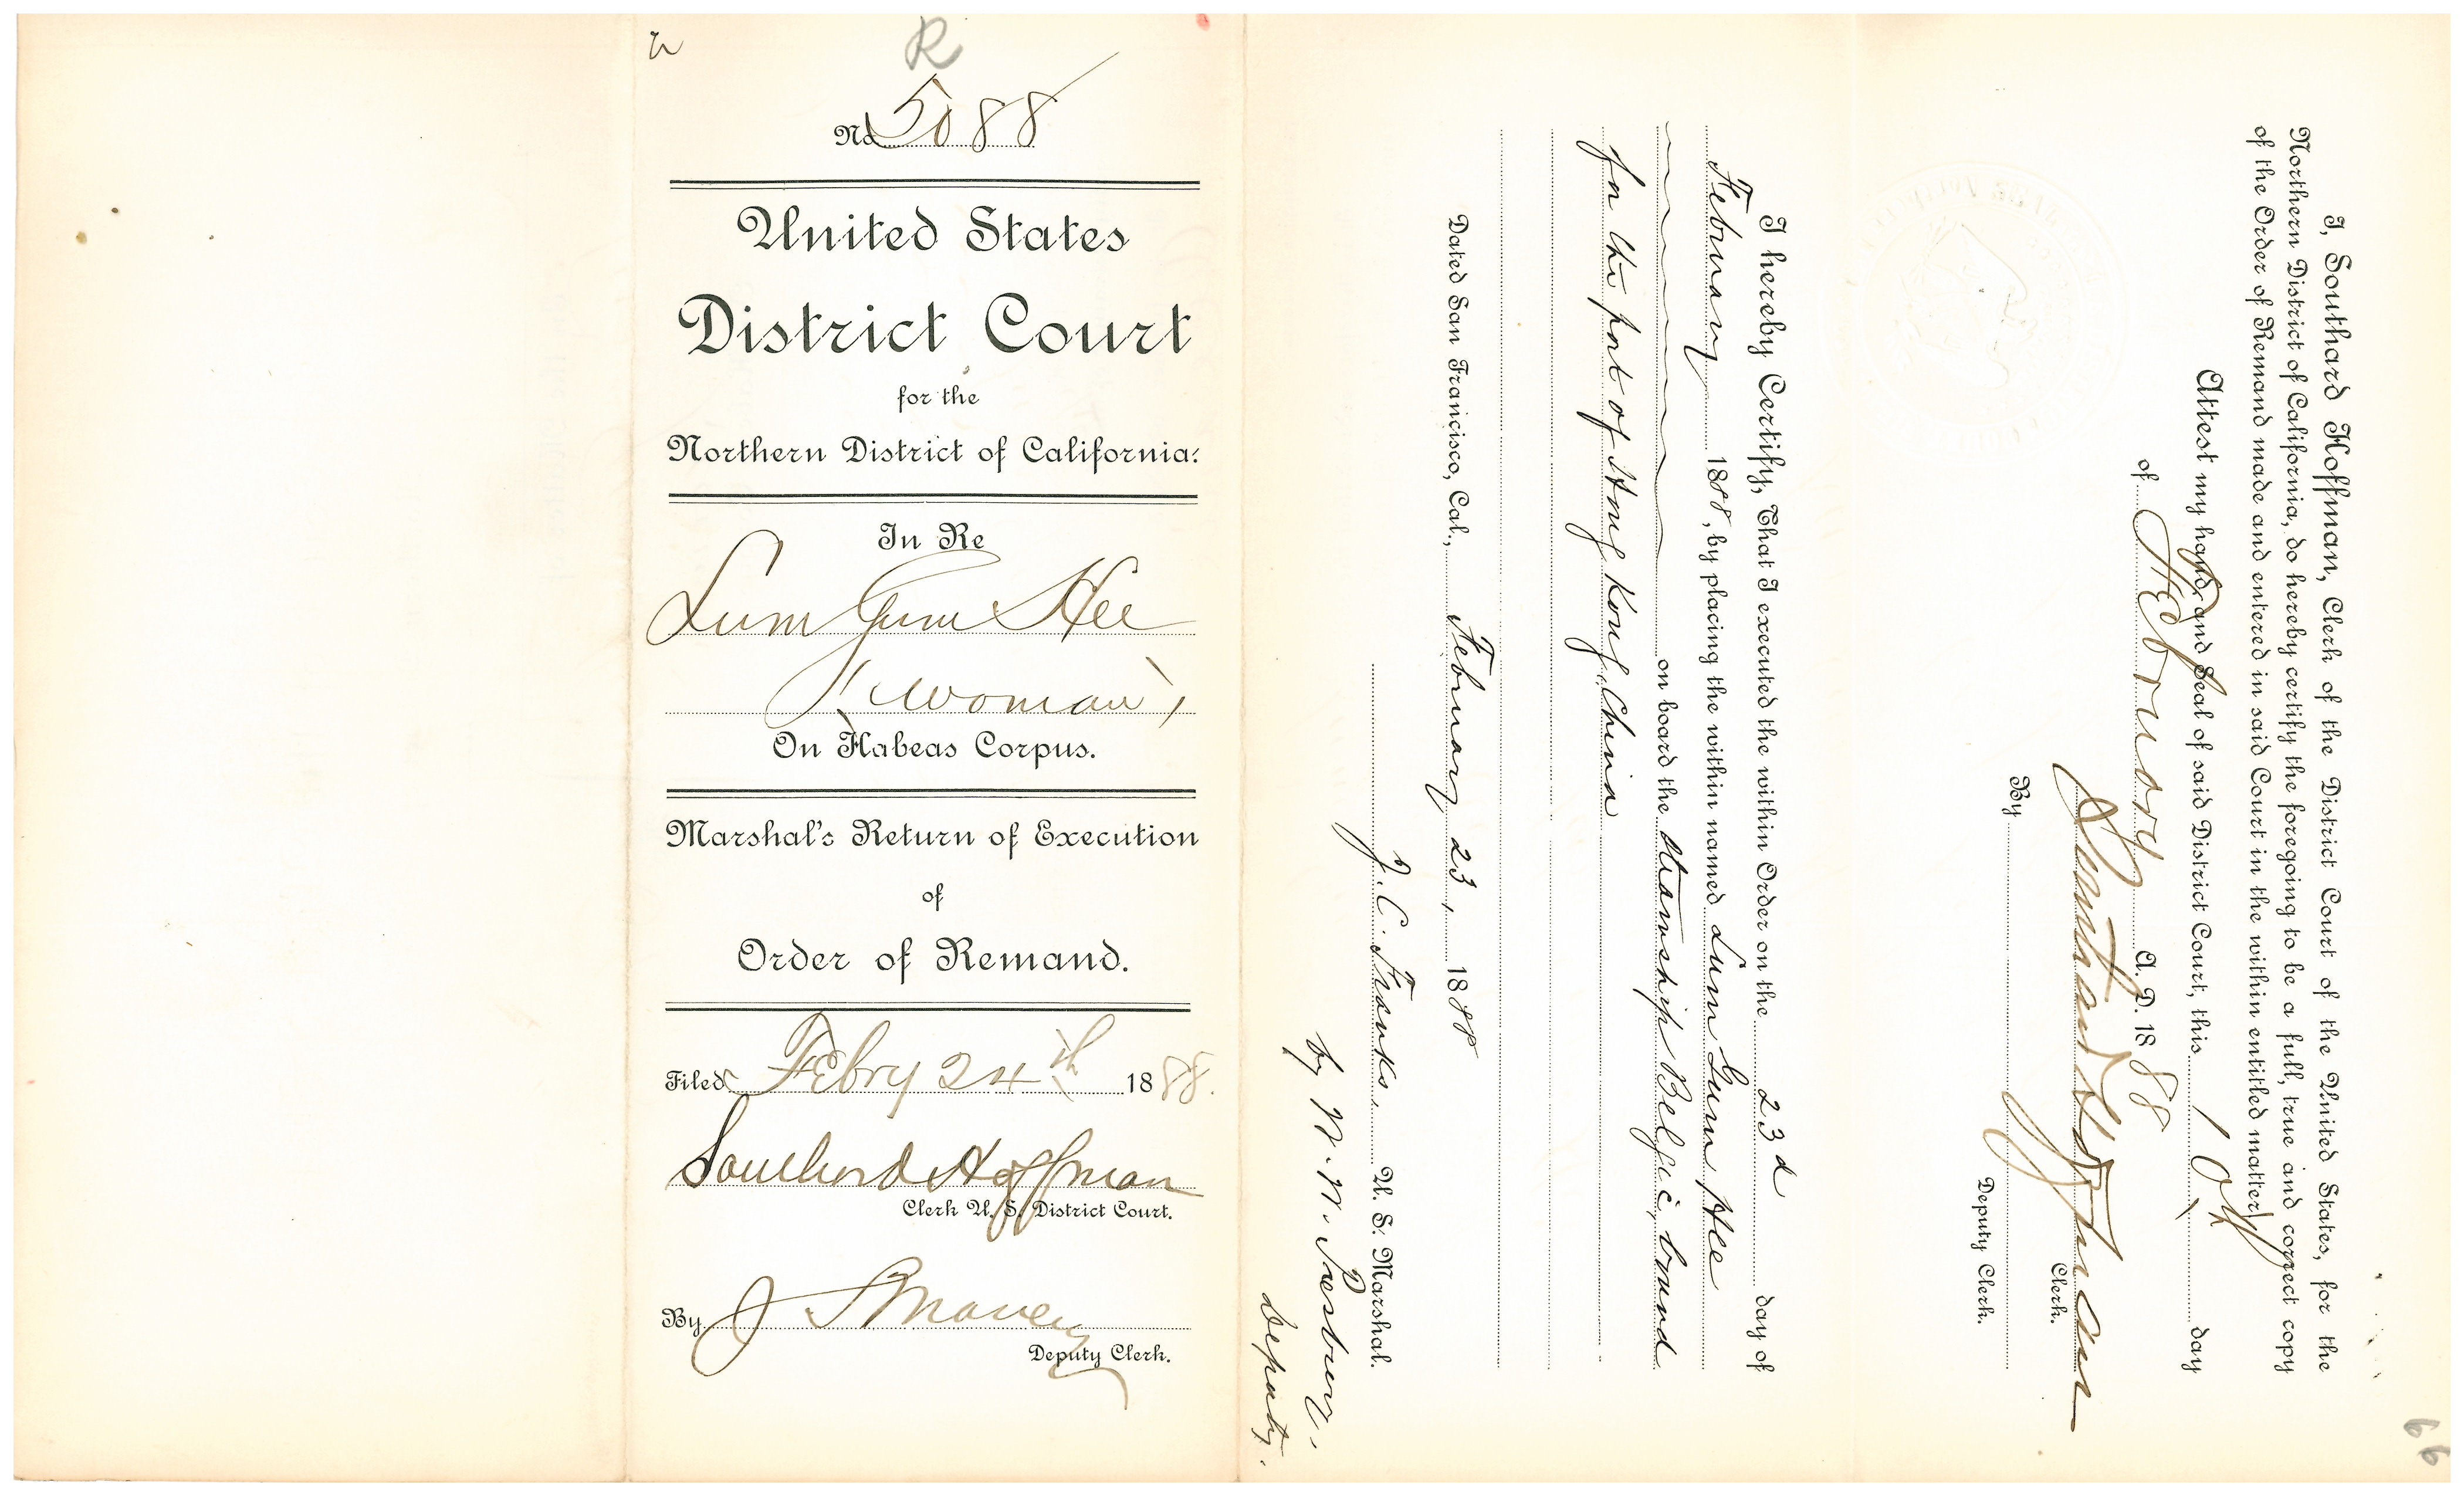 R
No 5088
United States
District Court
for the
Northern District of California.
In Re
Lum Gum Hee
(woman)
On Habeas Corpus.
Marshal's Return of Execution
of
Order of Remand.
Filed Febry 24th 1888.
Southard Hoffman
Clerk U. S. District Court.
By J S Manley
Deputy Clerk.
I hereby Certify, That I executed the within Order on the 23d day of
February 1888, by placing the within named Lum Gum Hee
on board the steamship Belgic, bound
for the port of Hong Kong, China
Dated San Francisco, Cal., February 23, 1888
J. C. Franks. U. S. Marshal.
by W. N. Presbury,
Deputy.
I, Southard Hoffman, Clerk of the District Court of the United States, for the
Northern District of California, do hereby certify the foregoing to be a full, true and correct copy
of the Order of Remand made and entered in said Court in the within entitled matter.
Attest my hand and Seal of said District Court, this 10th day
of February A. D. 1888
Southard Hoffman
Clerk.
By
Deputy Clerk.
66